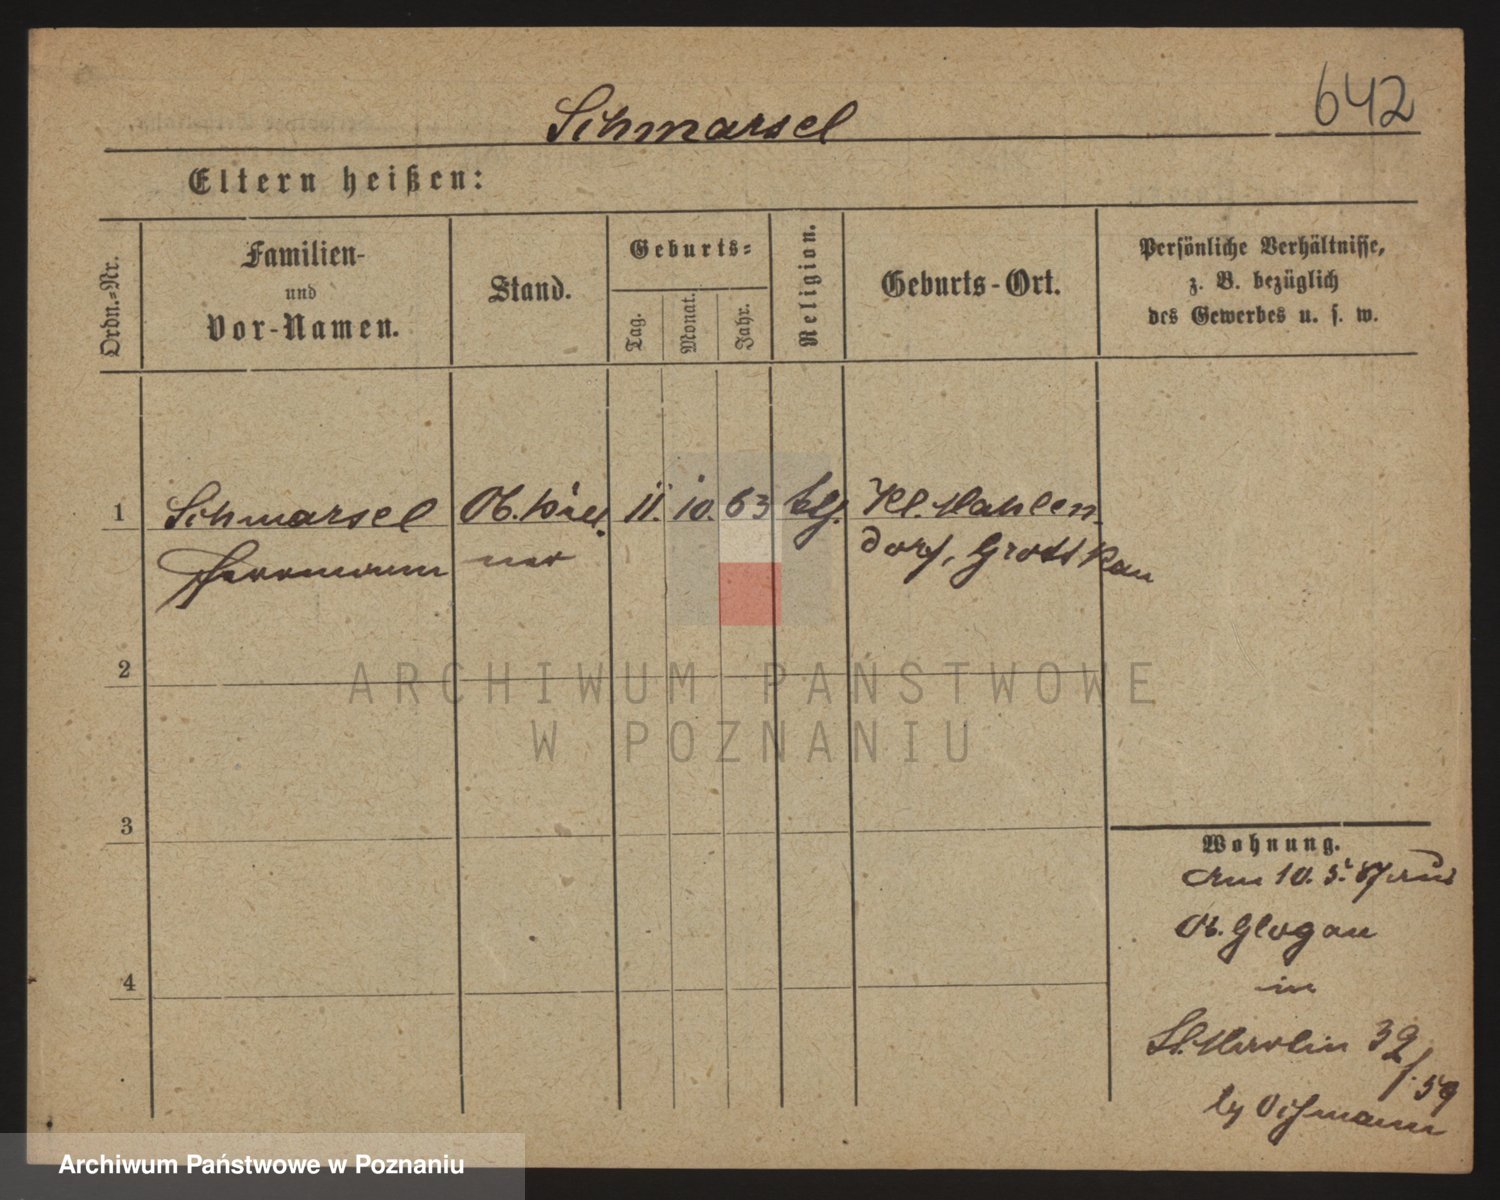 642
Schmarsel
Eltern heißen:
Ordn.-Nr.
Familien-
und
Vor-Namen.
Stand.
Geburts-
Tag.
Monat.
Jahr.
Religion.
Geburts-Ort.
Persönliche Verhältnisse,
z. B. bezüglich
des Gewerbes u. s. w.
1
Schmarsel
Herrmann
Ob.
ner
11. 10. 63
Kl. Mahlen
dorf, Grottkau
2
3
4
Wohnung.
Am 10. 5. 87 aus
Ob. Glogau
in
St. Martin 39
/. 59
ARCHIWUM PAŃSTWOWE
W POZNANIU
Archiwum Państwowe w Poznaniu